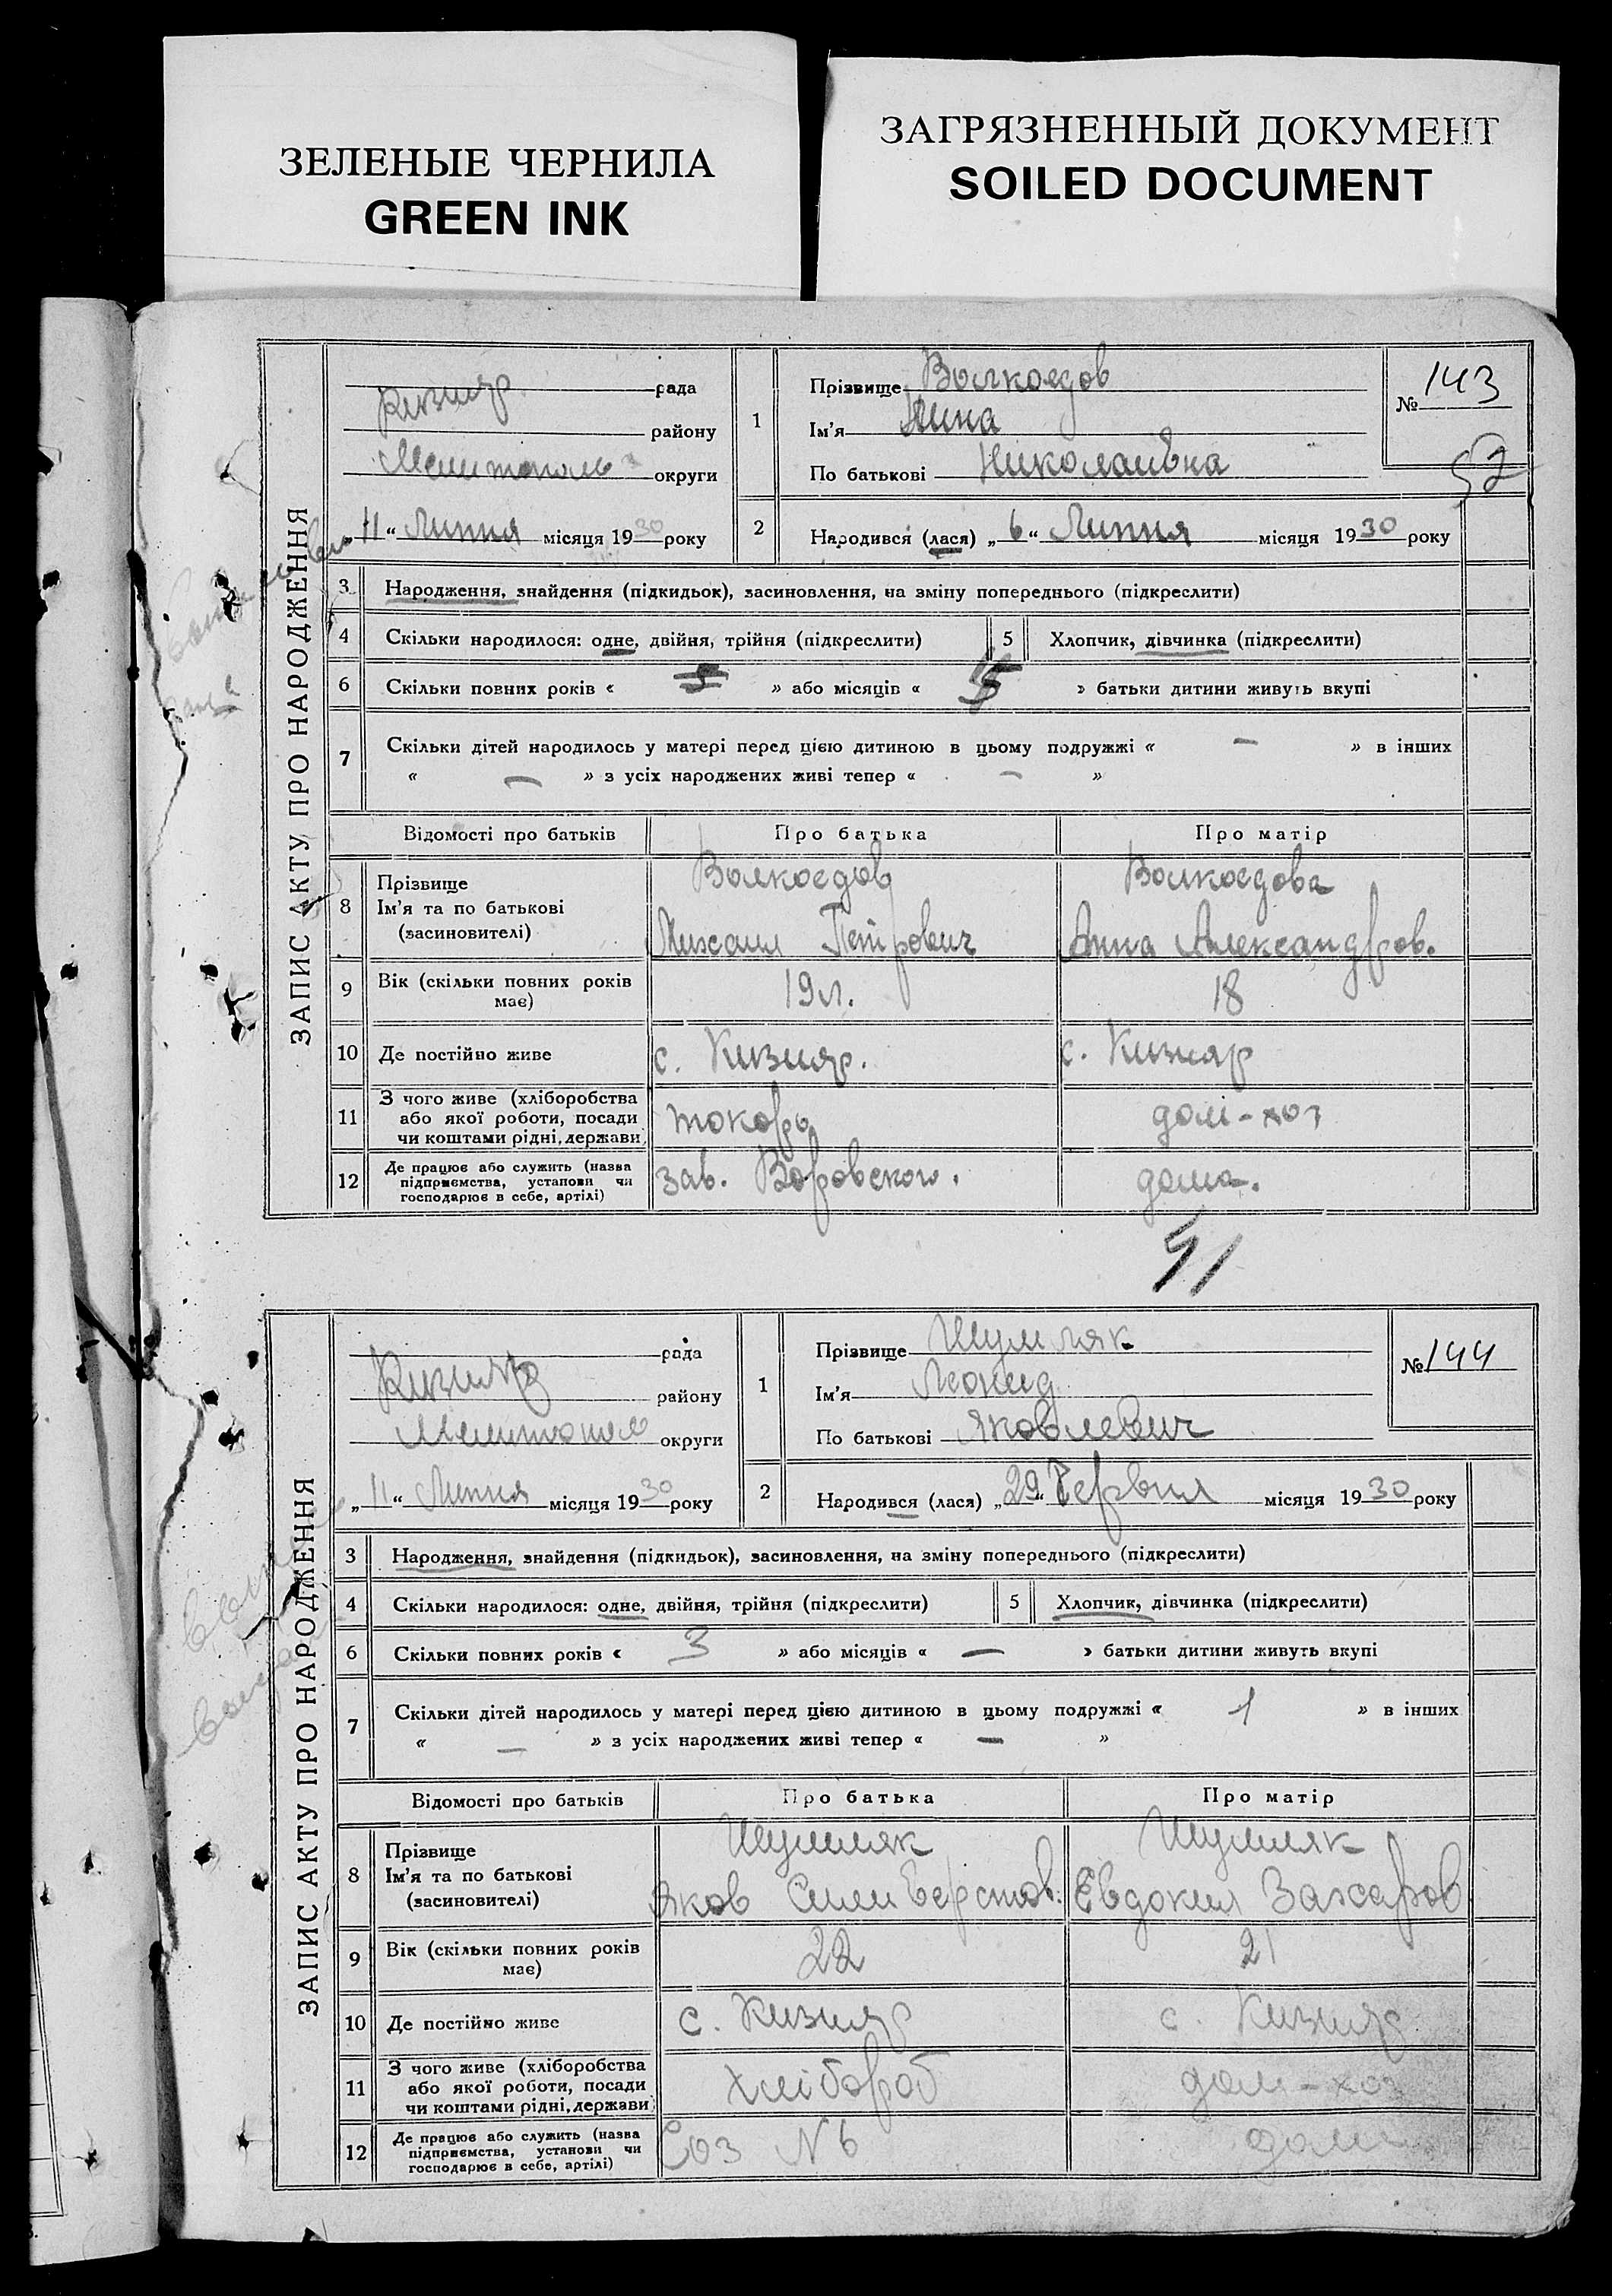 ЗЕЛЕНЫЕ ЧЕРНИЛА
GREEN INK
ЗАГРЯЗНЕННЫЙ ДОКУМЕНТ
SOILED DOCUMENT
ЗАПИС АКТУ ПРО НАРОДЖЕННЯ
рада
Кизияр
району
Мелитополь
округи
„11“ Липня місяця 1930 року
1
Прізвище Волкоедов
Ім’я Нина
По батькові Николаивна
№ 143
52
2
Народився (лася) „6“ Липня місяця 1930 року
3 Народження, знайдення (підкидьок), засиновлення, на зміну попереднього (підкреслити)
4 Скільки народилося: одне, двійня, трійня (підкреслити) 5 Хлопчик, дівчинка (підкреслити)
6 Скільки повних років « » або місяців « » батьки дитини живуть вкупі
7 Скільки дітей народилось у матері перед цією дитиною в цьому подружжі « — » в інших
« — » з усіх народжених живі тепер « — »
Відомості про батьків Про батька Про матір
8 Прізвище Ім’я та по батькові (засиновителі)
Волкоедов Волкоедова
Михаил Петрович Анна Александров.
9 Вік (скільки повних років має) 19 л. 18
10 Де постійно живе с. Кизияр. с. Кизияр
11 З чого живе (хліборобства або якої роботи, посади чи коштами рідні, держави) токарь дом-хоз
12 Де працює або служить (назва підприємства, установи чи господарює в себе, артілі) зав. Воровского. дома.
51
ЗАПИС АКТУ ПРО НАРОДЖЕННЯ
рада
Кизияр
району
Мелитопол
округи
„11“ Липня місяця 1930 року
1
Прізвище Шумляк
Ім’я Леонид
По батькові Яковлевич
№ 144
2
Народився (лася) „29“ Червня місяця 1930 року
3 Народження, знайдення (підкидьок), засиновлення, на зміну попереднього (підкреслити)
4 Скільки народилося: одне, двійня, трійня (підкреслити) 5 Хлопчик, дівчинка (підкреслити)
6 Скільки повних років « 3 » або місяців « — » батьки дитини живуть вкупі
7 Скільки дітей народилось у матері перед цією дитиною в цьому подружжі « 1 » в інших
« — » з усіх народжених живі тепер « — »
Відомості про батьків Про батька Про матір
8 Прізвище Ім’я та по батькові (засиновителі)
Шумляк Шумляк
Яков Евдокия Захаров
9 Вік (скільки повних років має) 22 21
10 Де постійно живе с. Кизияр с. Кизияр
11 З чого живе (хліборобства або якої роботи, посади чи коштами рідні, держави) хлібороб дом-хоз
12 Де працює або служить (назва підприємства, установи чи господарює в себе, артілі) Соз N 6 дома